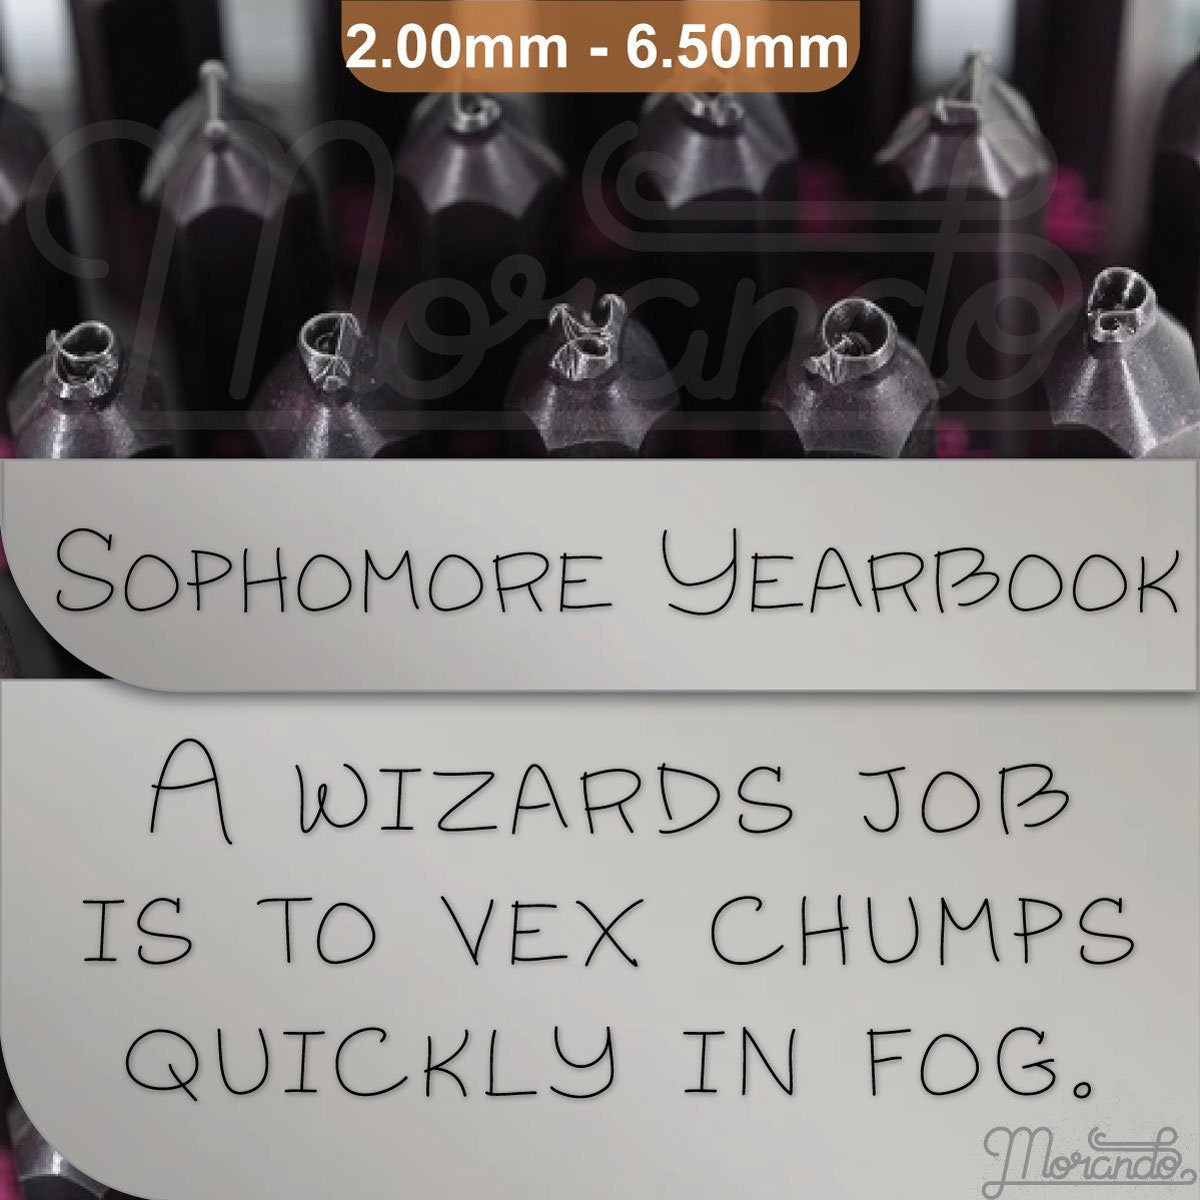 2.00mm - 6.50mm
Morando
SOPHOMORE YEARBOOK
A WIZARDS JOB
IS TO VEX CHUMPS
QUICKLY IN FOG.
Morando